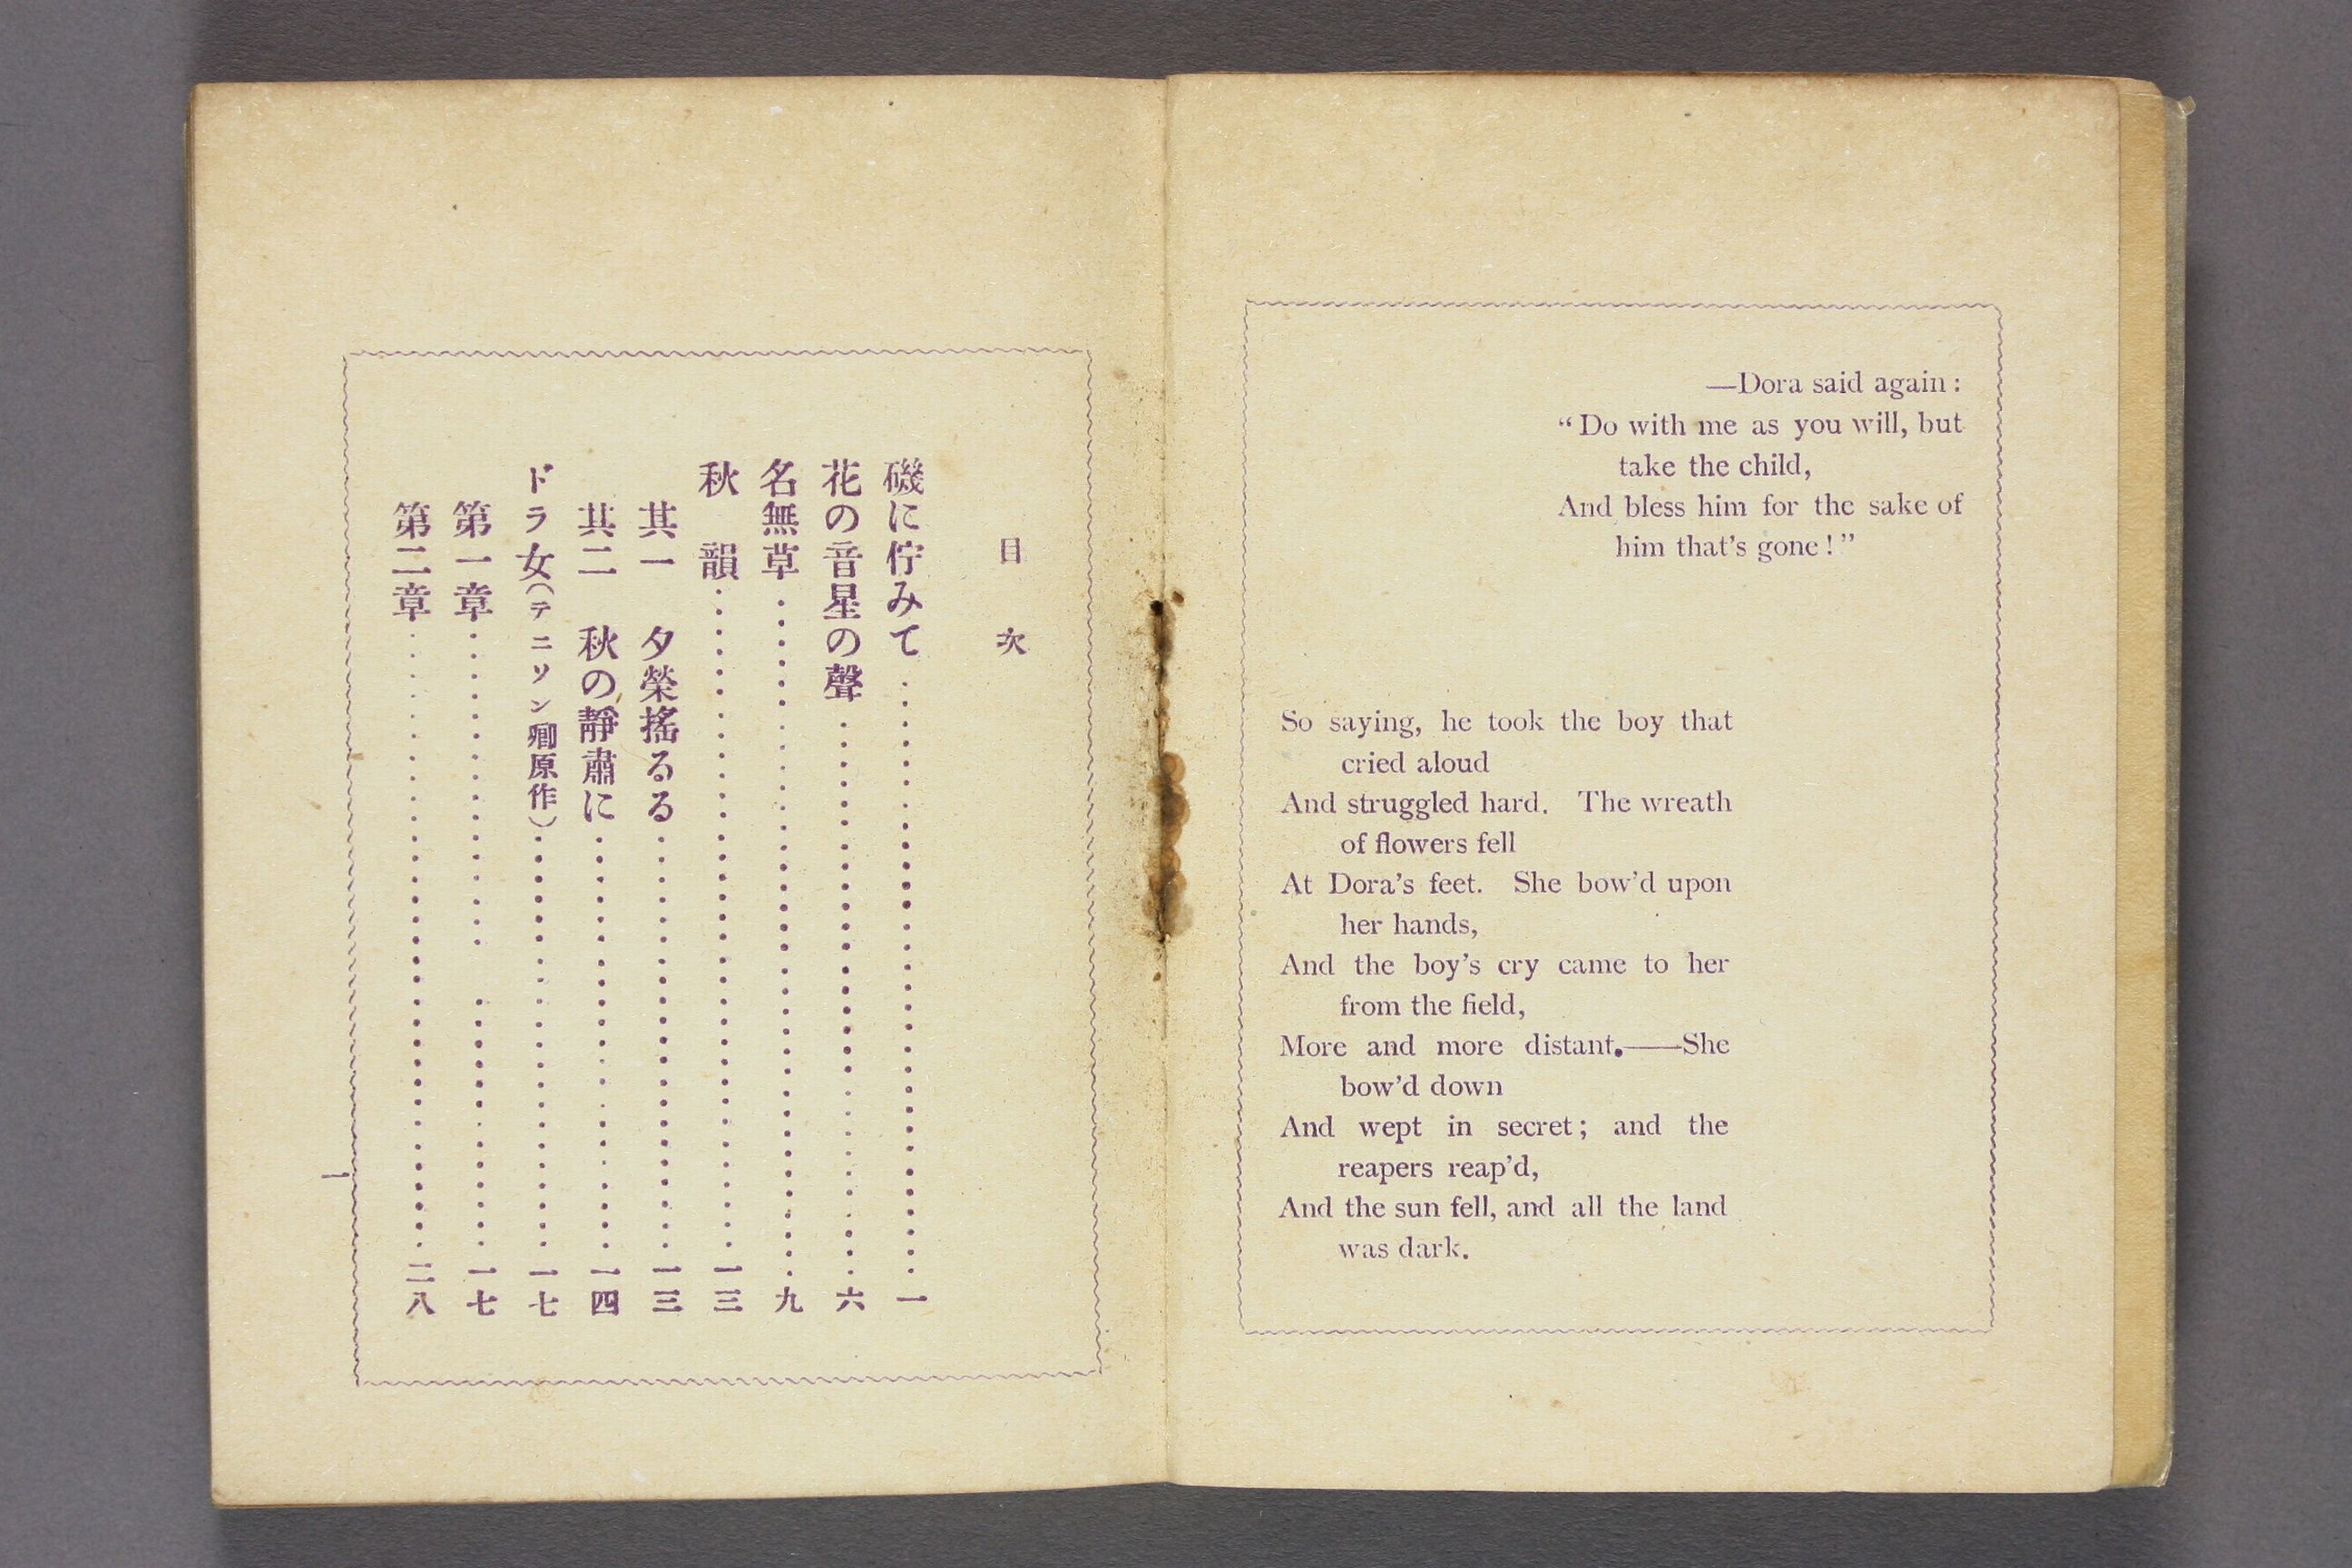 —Dora said again :
“ Do with me as you will, but
take the child,
And bless him for the sake of
him that's gone ! ”
So saying, he took the boy that
cried aloud
And struggled hard. The wreath
of flowers fell
At Dora's feet. She bow'd upon
her hands,
And the boy's cry came to her
from the field,
More and more distant.——She
bow'd down
And wept in secret ; and the
reapers reap'd,
And the sun fell, and all the land
was dark.
目次
磯に佇みて……一
花の音星の聲……六
名無草……九
秋　韻……一三
其一　夕榮搖るる……一三
其二　秋の靜肅に……一四
ドラ女（テニソン卿原作）……一七
第一章……一七
第二章……二八
一